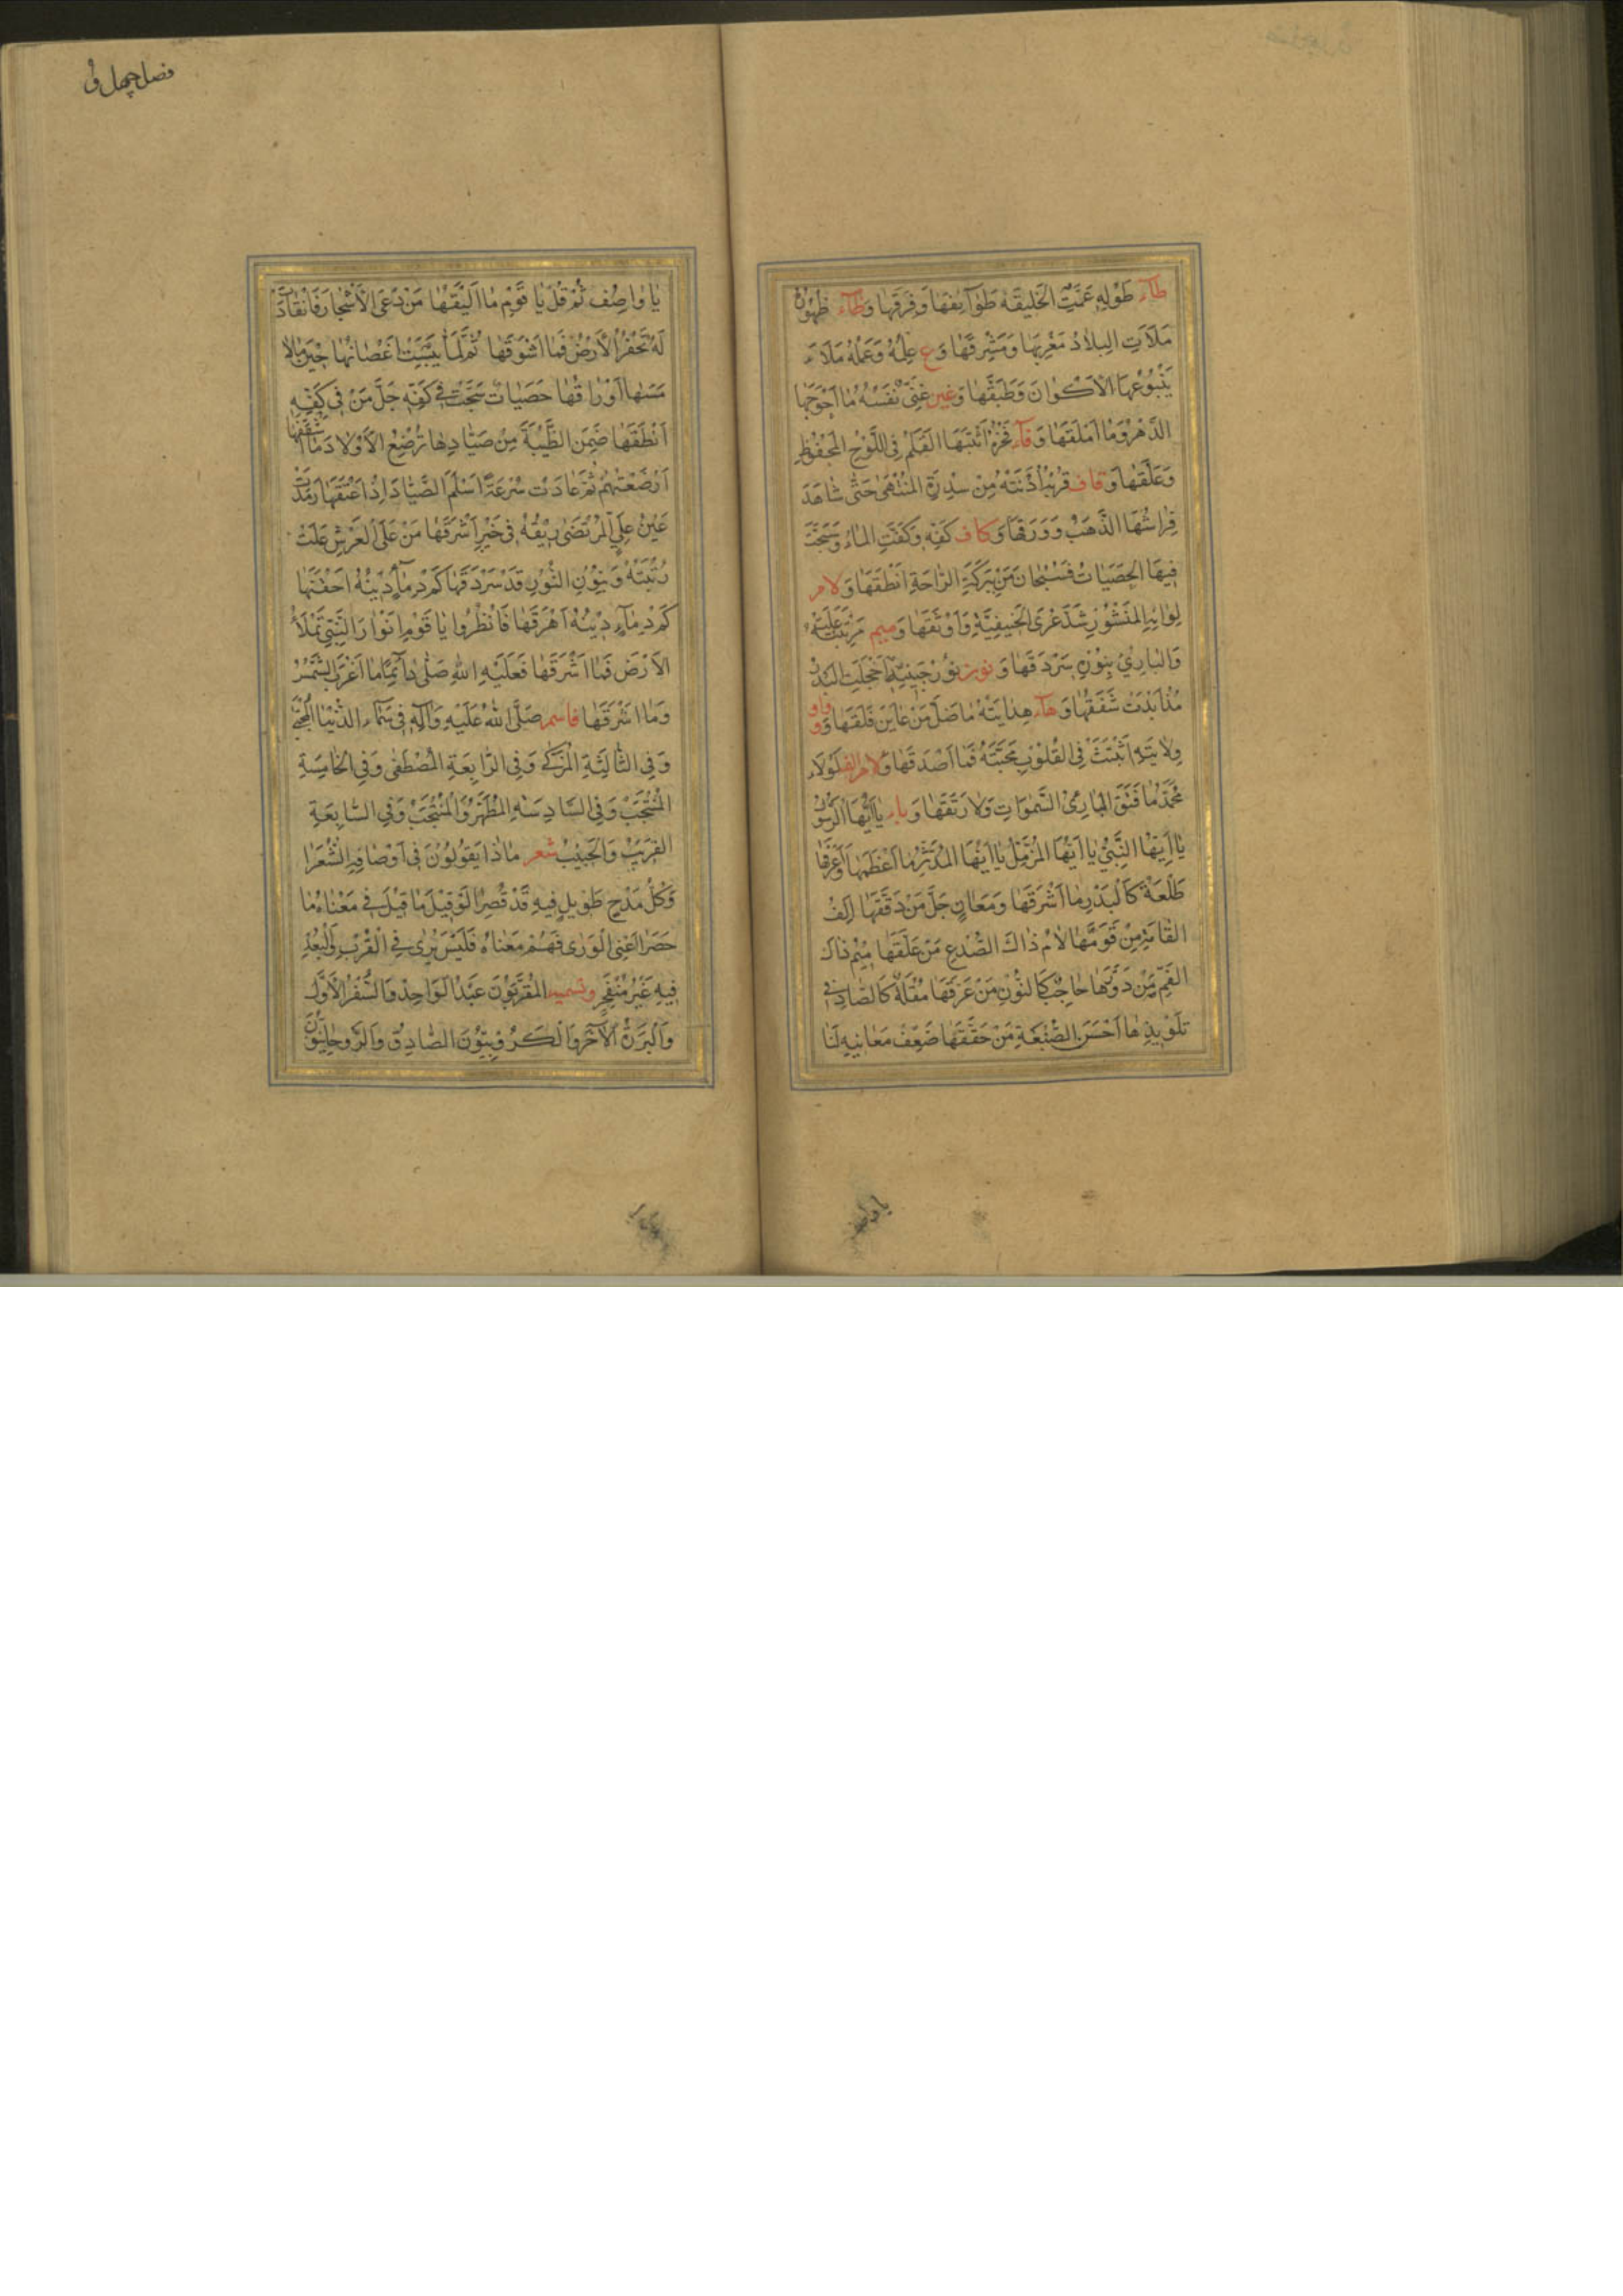 طآء طَوْلِهِ عَمَّتِ الْخَلِيقَةَ طَوَآئِفَهَا وَفِرَقَهَا وَظآء ظُهُورُهُ
مَلَأَتِ الْبِلَادُ مَغْرِبَهَا وَمَشْرِقَهَا وَع عِلْمُهُ وَعَمَلُهُ مَلَاءَ
يَنْبُوعُهَا الْأَكْوَانَ وَطَبَقَهَا وَغين غِنَى نَفْسُهُ مَا أَحْوَجَهَا
الدَّهْرُ وَمَا أَمْلَقَهَا وَفآء فَخْرُهُ أَثْبَتَهَا الْقَلَمُ فِي اللَّوْحِ الْمَحْفُوظِ
وَعَلَّقَهَا وَقاف قُرْبُهُ أَدْنَتْهُ مِنْ سِدْرَةِ الْمُنْتَهَى حَتَّى شَاهَدَ
فِرَاشُهَا الذَّهَبُ وَوَرَقَهَا وَكاف كَفِّهِ وَكَفَتِ الْمَاءُ وَسَبَّحَتْ
فِيهَا الْحَصَيَاتُ فَسُبْحَانَ مَنْ بَرَكَةِ الرَّاحَةِ أَنْطَقَهَا وَلام
لِوَائِهِ الْمَنْشُورِ شَدَّ عُرَى الْحَنِيفِيَّةِ وَأَوْثَقَهَا وَميم مَرْتَبَتُهُ عَلِيَّةٌ
وَالْبَارِئُ بِنُورِهِ سَرْدَقَهَا وَنون نُورُ جَبِينِهِ أَخْجَلَتِ الْبَدْرُ
مُذْ أَبْدَتْ شَفَقَهَا وَهآء هِدَايَتُهُ مَا ضَلَّ مَنْ عَايَنَ فَلَقَهَا وَواو
وِلَايَتِهِ أَثْبَتَتْ فِي الْقُلُوبِ مَحَبَّتَهُ فَمَا أَصْدَقَهَا وَلام الف لَوْلَاءِ
مُحَمَّدٌ مَا فَتَقَ الْبَارِئُ السَّمٰوَاتِ وَلَا رَتَقَهَا وَياء يَا أَيُّهَا الرَّسُولُ
يَا أَيُّهَا النَّبِيُّ يَا أَيُّهَا الْمُزَّمِّلُ يَا أَيُّهَا الْمُدَّثِّرُ مَا أَعْظَمَهَا وَأَعْرَقَهَا
طَلْعَةٌ كَالْبَدْرِ مَا أَشْرَقَهَا وَمَعَانٍ جَلَّ مَنْ دَقَّقَهَا أَلِفُ
الْقَامَةِ مِنْ قَوَّمَهَا لَامُ ذَاكَ الصُّدْغِ مَنْ عَلَّقَهَا مِيْمُ ذَاكَ
الْفَمِّ مَنْ دَوَّرَهَا حَاجِبٌ كَالنُّونِ مَنْ عَرَّقَهَا مُقْلَةٌ كَالصَّادِ فِي
تَلْوِيذِهَا أَحْسَنَ الصَّنْعَةِ مَنْ حَقَّقَهَا ضَعِّفْ مَعَانِيهِ لَنَا
فصل چهل و
يَا وَاصِفُ ثُمَّ قُلْ يَا قَوْمِ مَا أَلْيَقَهَا مَنْ دَعَى الْأَشْجَارَ فَانْقَادَتْ
لَهُ تَحْفِرُ الْأَرْضُ فَمَا أَشْوَقَهَا ثُمَّ لَمَّا يَبِسَتْ أَغْصَانُهَا حِيْنَ مَالَا
مَسَّهَا أَوْرَاقُهَا حَصَيَاتٌ سَبَّحَتْ فِي كَفِّهِ جَلَّ مَنْ فِي كَفِّهِ
أَنْطَقَهَا ضَمِنَ الظَّبْيَةَ مِنْ صَيَّادِهَا تُرْضِعُ الْأَوْلَادَ مَا أَشْفَقَهَا
أَرْضَعَتْهُمْ ثُمَّ عَادَتْ سُرْعَةً أَسْلَمَ الصَّيَّادُ إِذْ أَعْتَقَهَا رَمَدَتْ
عَيْنُ عَلِيِّ الْمُرْتَضَى رِيْقُهُ فِي خَيْرٍ أَشْرَقَهَا مَنْ عَلَى الْعَرْشِ عَلَتْ
رُتْبَتُهُ وَبِنُوْنِ النُّوْرِ قَدْ سَرْدَقَهَا كَمْ دِمَاءٍ دِيْنُهُ أَحْقَنَهَا
كَمْ دِمَاءٍ دِيْنُهُ أَهْرَقَهَا فَانْظُرُوا يَا قَوْمِ أَنْوَارَ النَّبِيِّ تَمْلَأُ
الْأَرْضَ فَمَا أَشْرَقَهَا فَعَلَيْهِ اللهُ صَلَّى دَائِمًا مَا أَغْرَبَ الشَّمْسُ
وَمَا أَشْرَقَهَا فاسم صَلَّى اللهُ عَلَيْهِ وَآلِهِ فِي سَمَاءِ الدُّنْيَا الْمُجْتَبَى
وَفِي الثَّالِثَةِ الْمُزَكَّى وَفِي الرَّابِعَةِ الْمُصْطَفَى وَفِي الْخَامِسَةِ
الْمُنْتَجَبُ وَفِي السَّادِسَةِ الْمُطَهَّرُ وَالْمُنْتَجَبُ وَفِي السَّابِعَةِ
الْقَرِيْبُ وَالْحَبِيْبُ شعر مَاذَا يَقُولُونَ فِي أَوْصَافِهِ الشُّعَرَا
وَكُلُّ مَدْحٍ طَوِيلٍ فِيهِ قَدْ قَصُرَا لَوْ قِيْلَ مَا قِيْلَ فِي مَعْنَاهُ مَا
حَصَرَا أَعْنَى الْوَرَى فَهْمُ مَعْنَاهُ فَلَيْسَ يُرَى فِي الْقُرْبِ وَالْبُعْدِ
فِيهِ غَيْرُ مُنْفَحِمِ وتسميه الْمُقَرَّبُونَ عَبْدَ الْوَاحِدِ وَالسَّفَرُ الْأَوَّلَ
وَالْبَرَرَةُ الْآخِرَ وَالْكَرُوبِيُّونَ الصَّادِقَ وَالرُّوحَانِيُّونَ